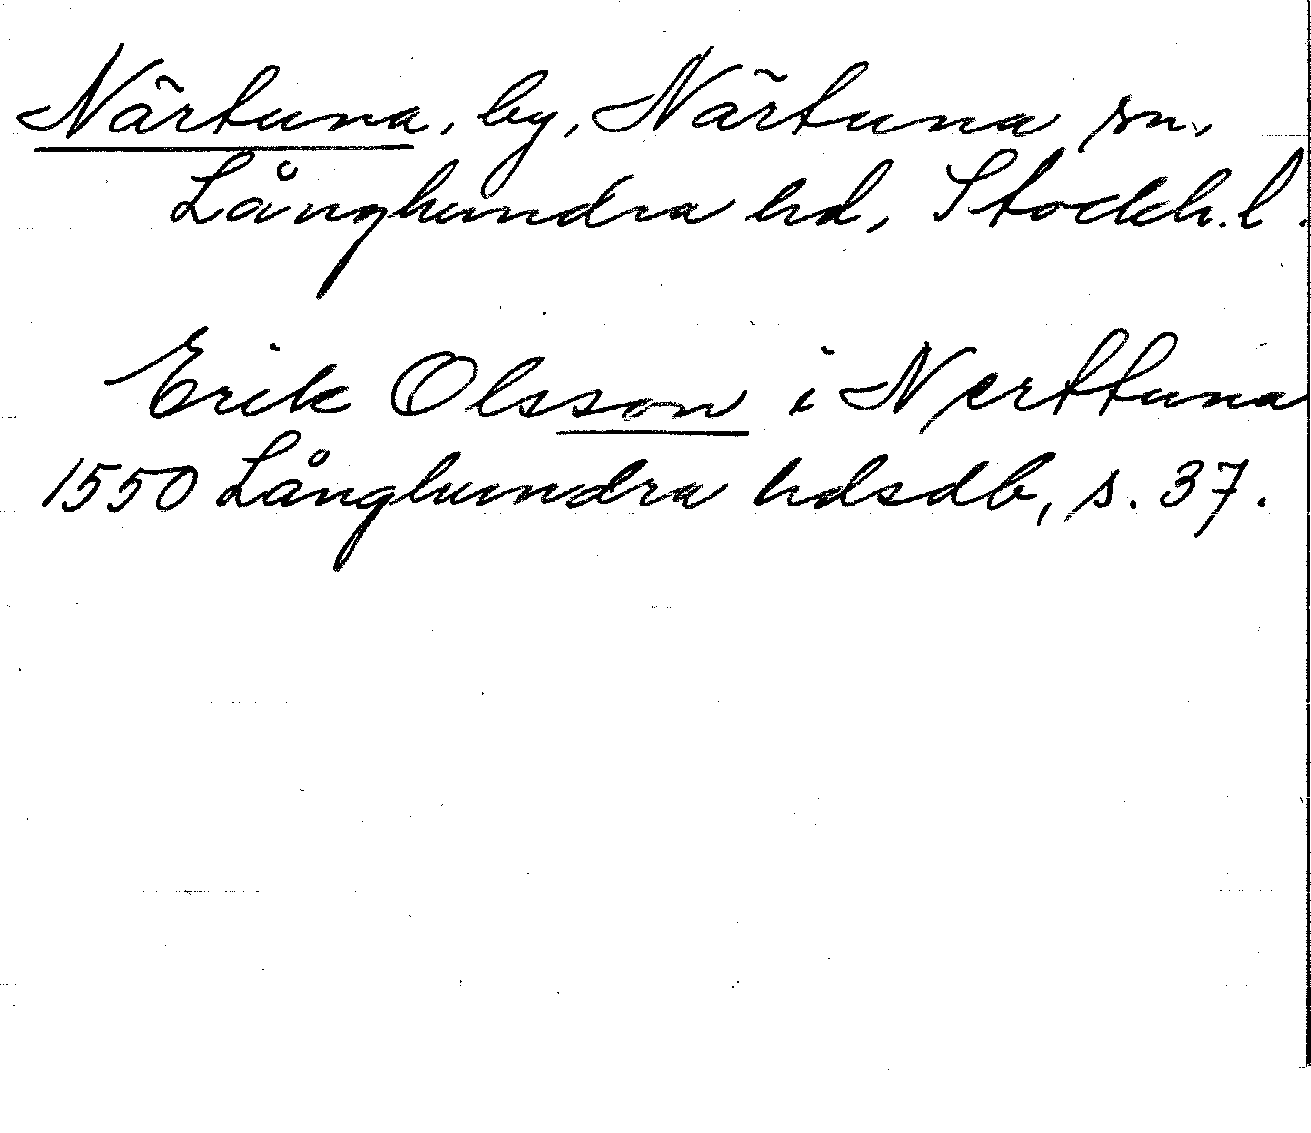 Närtuna, by, Närtuna sn,
Långhundra hd, Stockh. l.
Erik Olsson i Nerttuna
1550 Långhundra hdsdb, s. 37.